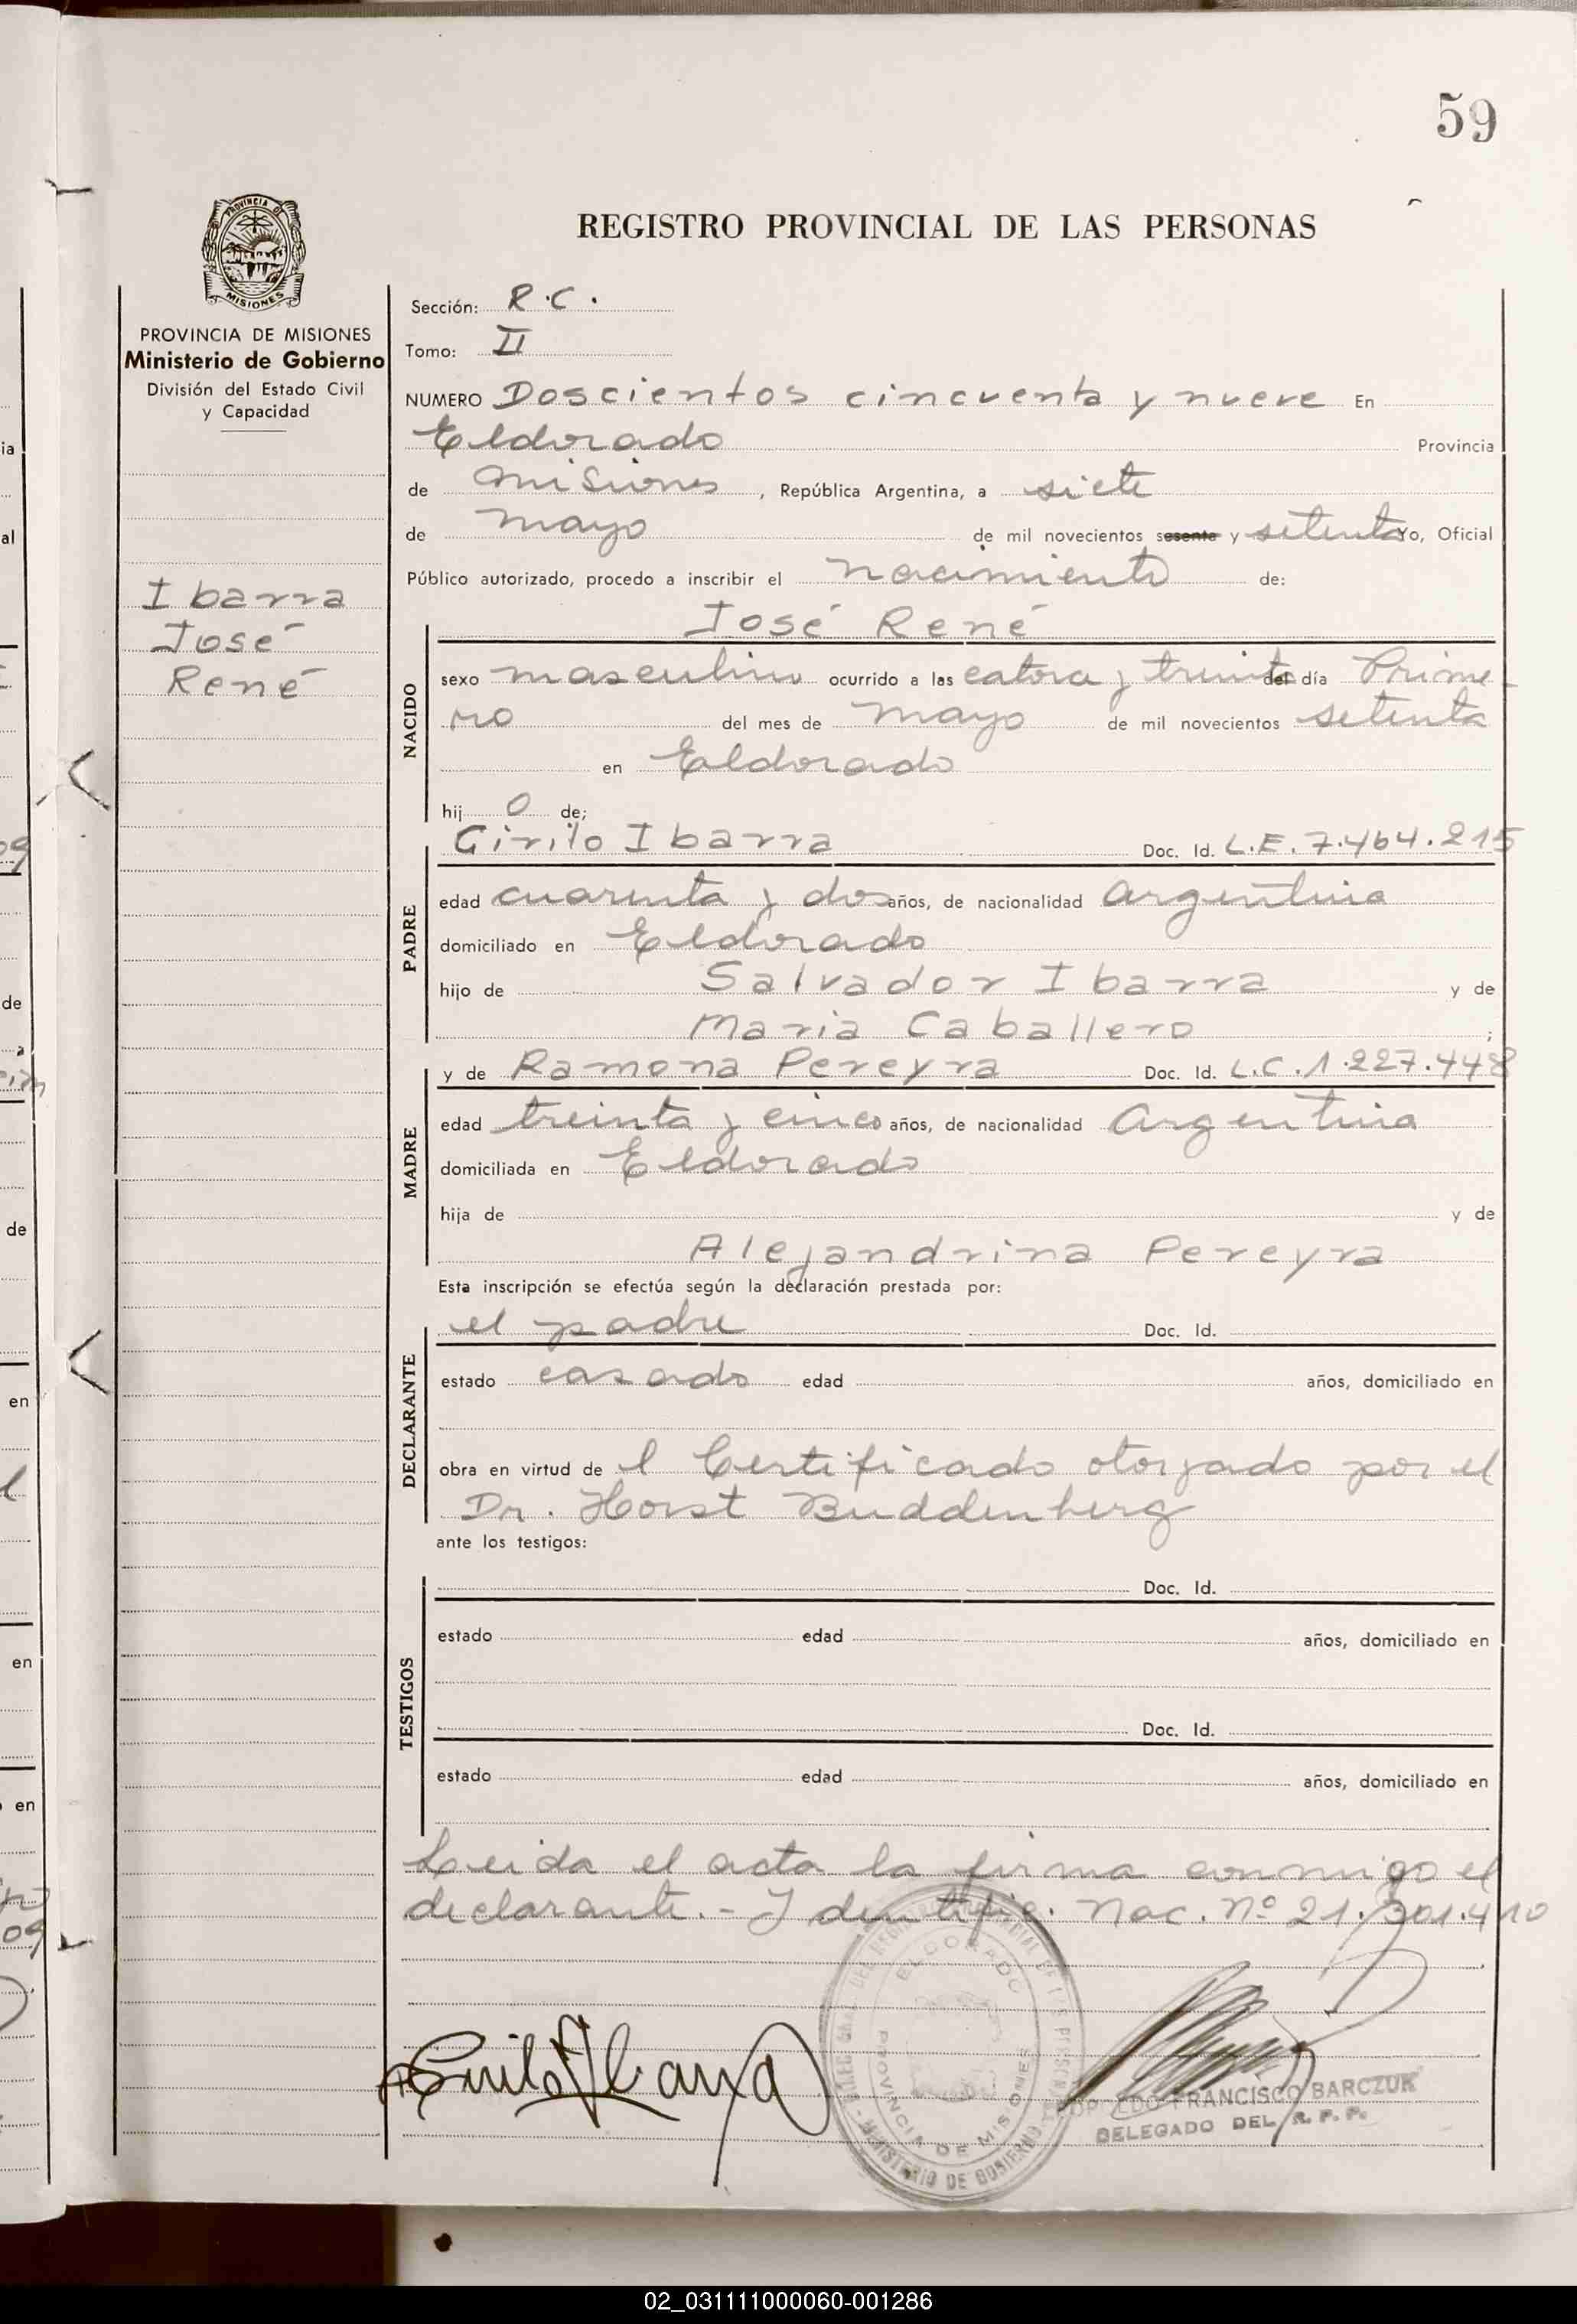 59
REGISTRO PROVINCIAL DE LAS PERSONAS
PROVINCIA DE
MISIONES
PROVINCIA DE MISIONES
Ministerio de Gobierno
División del Estado Civil
y Capacidad
Ibarra
José
René
Sección: R.C.
Tomo: II
NUMERO Doscientos cincuenta y nueve En
Eldorado Provincia
de Misiones, República Argentina, a siete
de mayo de mil novecientos sesenta y setenta Yo, Oficial
Público autorizado, procedo a inscribir el nacimiento de:
José René
NACIDO
sexo masculino ocurrido a las catorce y treinta del día Prime-
ro del mes de mayo de mil novecientos setenta
en Eldorado
hij o de;
Cirilo Ibarra Doc. Id. L.E. 7.464.215
PADRE
edad cuarenta y dos años, de nacionalidad Argentina
domiciliado en Eldorado
hijo de Salvador Ibarra y de
Maria Caballero ;
y de Ramona Pereyra Doc. Id. L.C. 1.227.448
MADRE
edad treinta y cinco años, de nacionalidad Argentina
domiciliada en Eldorado
hija de y de
Alejandrina Pereyra
Esta inscripción se efectúa según la declaración prestada por:
el padre Doc. Id.
DECLARANTE
estado casado edad años, domiciliado en
obra en virtud de l Certificado otorgado por el
Dr. Horst Buddenberg
ante los testigos:
Doc. Id.
TESTIGOS
estado edad años, domiciliado en
Doc. Id.
estado edad años, domiciliado en
Leida el acta la firma conmigo el
declarante.- Identific. Nac. nº 21.301.410
ELDORADO
PROVINCIA DE MISIONES
MINISTERIO DE GOBIERNO
Cirilo Ibarra
FRANCISCO BARCZUK
DELEGADO DEL R. P. P.
02_031111000060-001286